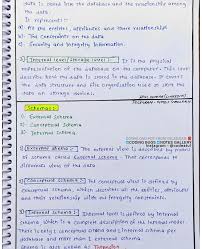 data is stored into the database and the relationship among
the data. It represents.
a) All the entities, attributes and there relationships
b) The constraints on the data
c) Security and Integrity Information.
3) Internal level/storage level :- It is the physical
representation of the database on the computer. This level
describes how the data is stored in the database. It covers
the data structure and file organisation used to store the
data on storage devices.
Schemas :
1) External Schema
2) Conceptual Schema
3) Internal Schema
CODING BUGS NOTES GALLERY
1) External Schema :- The external view is described by means
of schema called External schema. That correspond to
different views of the data
2) Conceptual Schema :- The conceptual view is defined by
conceptual schema, which describes all the entities, attributes
and their relationship with and integrity constraints.
3) Internal Schema : Internal level is defined by Internal
schema which is a complete description of the internal model.
There is only 1 conceptual schema and 1 internal schema per
database and more than 1 external schema.